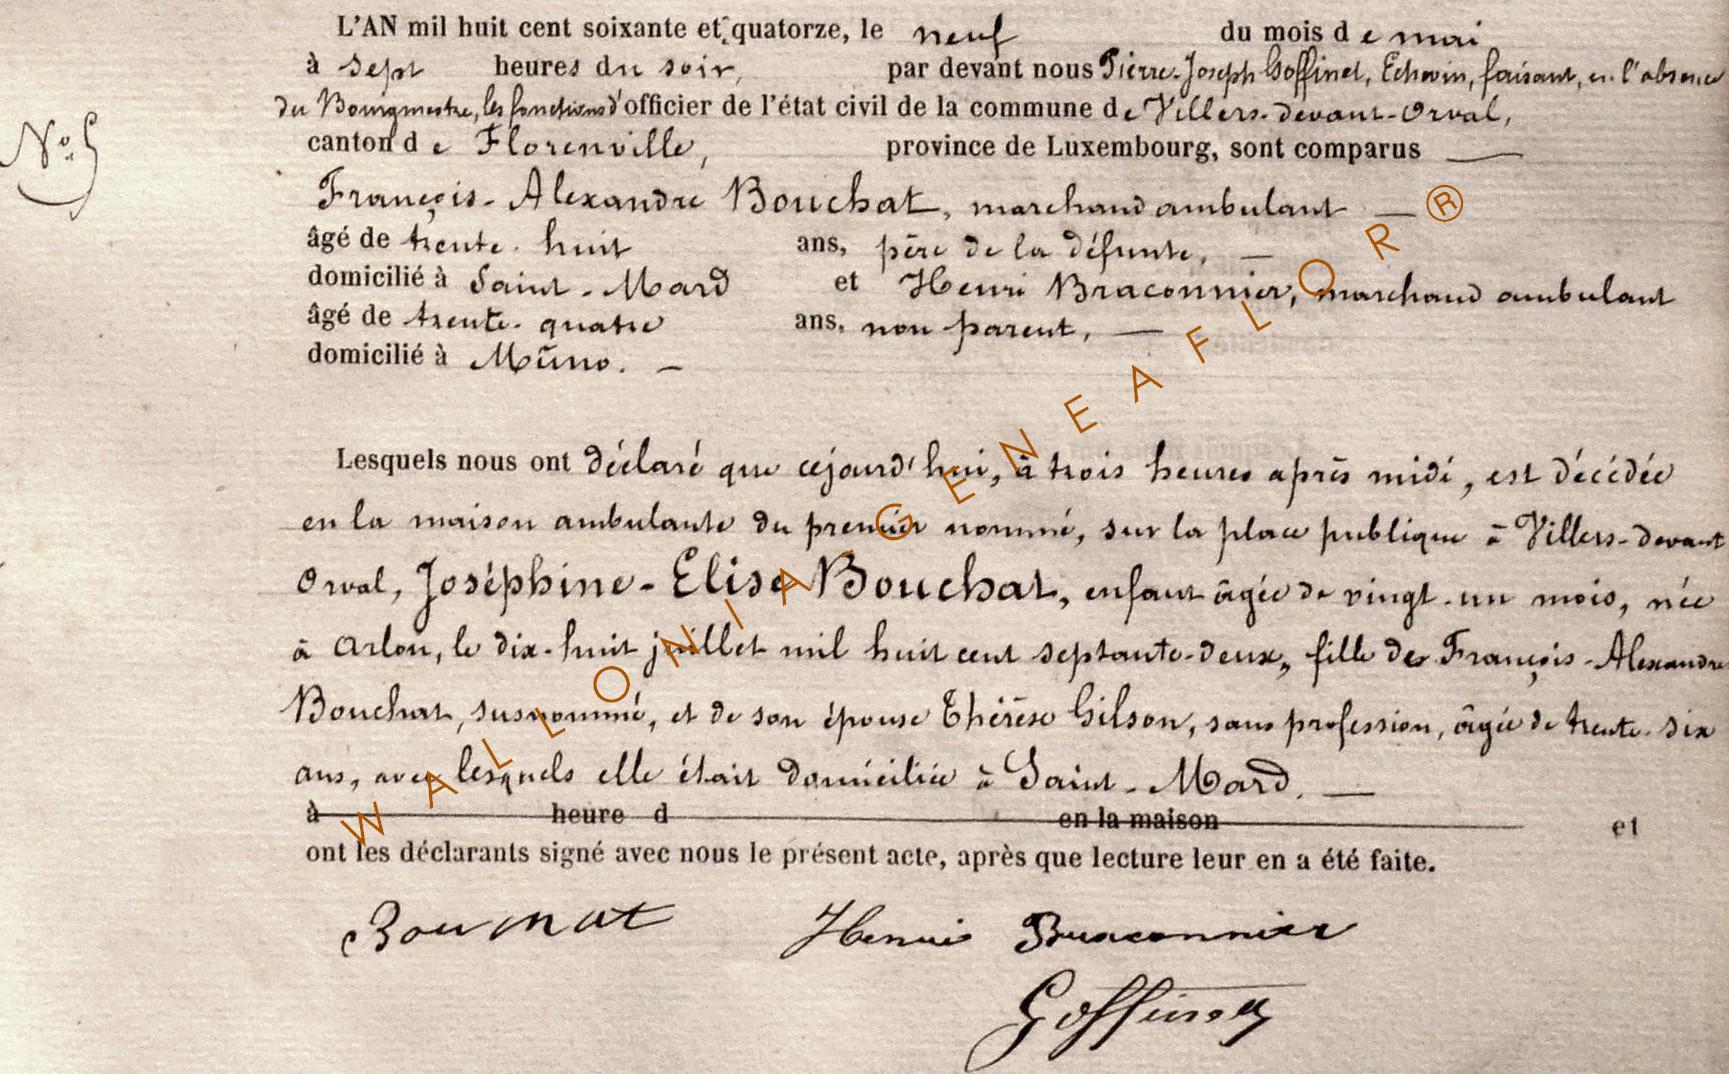 L'AN mil huit cent soixante et quatorze, le neuf du mois de mai
à sept heures du soir, par devant nous Pierre-Joseph Goffinet, Echevin, faisant, en l'absence
du Bourgmestre, les fonctions d'officier de l'état civil de la commune de Villers-devant-Orval,
N° 5
canton de Florenville, province de Luxembourg, sont comparus
François-Alexandre Bouchat, marchand ambulant
âgé de trente-huit ans, père de la défunte,
domicilié à Saint-Mard et Henri Braconnier, marchand ambulant
âgé de trente-quatre ans, non parent,
domicilié à Muno.
Lesquels nous ont déclaré que cejourd'hui, à trois heures après midi, est décédée
en la maison ambulante du premier nommé, sur la place publique à Villers-devant
Orval, Joséphine-Elise Bouchat, enfant âgée de vingt-un mois, née
à Arlon, le dix-huit juillet mil huit cent septante-deux, fille de François-Alexandre
Bouchat, susnommé, et de son épouse Thérèse Gilson, sans profession, âgée de trente-six
ans, avec lesquels elle était domiciliée à Saint-Mard.
à heure d en la maison et
ont les déclarants signé avec nous le présent acte, après que lecture leur en a été faite.
Bouchat Henri Braconnier
Goffinet
WALLONIA-GENEAFLOR®